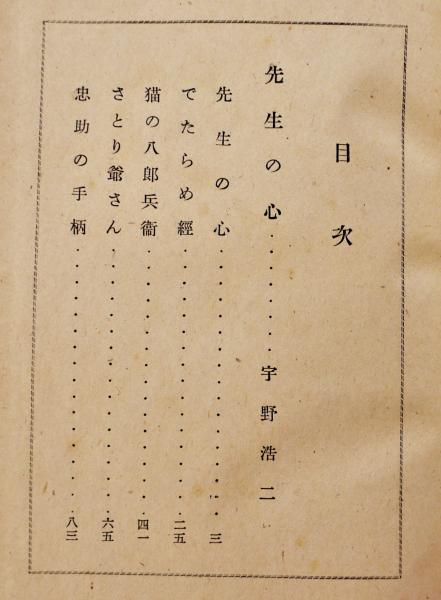 目次
先生の心・・・・・・・・宇野浩二
先生の心・・・・・・・・・・・・・・・・・・三
でたらめ經・・・・・・・・・・・・・・・・・・二五
猫の八郎兵衞・・・・・・・・・・・・・・・・・・四一
さとり爺さん・・・・・・・・・・・・・・・・・・六五
忠助の手柄・・・・・・・・・・・・・・・・・・八三